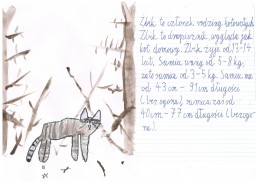 Żbik to członek rodziny kotowatych
Żbik to drapieżnik wygląda jak
kot domowy. Żbik żyje od 13-14
lat. Samce ważą od 5-8 kg,
zaś samice od 3-5 kg. Samiec ma
od 43 cm - 91 cm długości
(bez ogona), samica zaś od
40 cm - 77 cm długości (bez ogo-
na).